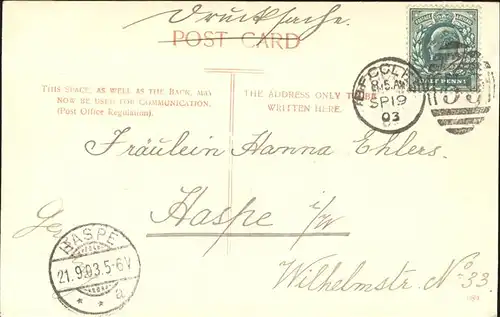 Drucksache.
POST CARD
POSTAGE REVENUE
HALF PENNY
THIS SPACE, AS WELL AS THE BACK, MAY
NOW BE USED FOR COMMUNICATION.
(Post Office Regulation).
THE ADDRESS ONLY TO BE
WRITTEN HERE.
BECCLES
8.05 AM
SP 19
03
Fräulein Hanna Ehlers.
Haspe i/W
HASPE
21.9.03.5-6V
* * a
Wilhelmstr. No. 33.